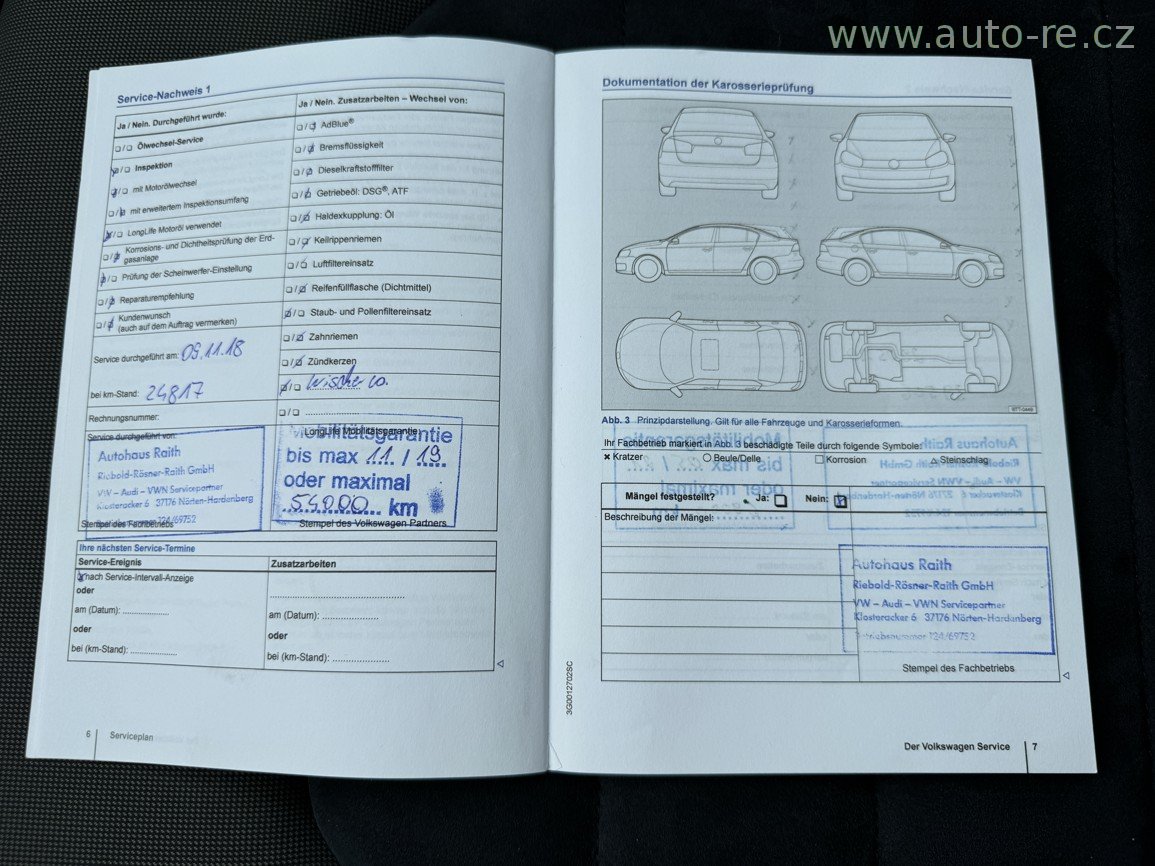 www.auto-re.cz
Service-Nachweis 1
Ja / Nein. Durchgeführt wurde:
Ölwechsel-Service
Inspektion
mit Motorölwechsel
mit erweitertem Inspektionsumfang
LongLife Motoröl verwendet
Korrosions- und Dichtheitsprüfung der Erd-
gasanlage
Prüfung der Scheinwerfer-Einstellung
Reparaturempfehlung
Kundenwunsch
(auch auf dem Auftrag vermerken)
Service durchgeführt am: 05.11.18
bei km-Stand: 24817
Rechnungsnummer:
Service durchgeführt von:
Autohaus Raith
Riebold-Rösner-Raith GmbH
VW – Audi – VWN Servicepartner
Klosteracker 6 37176 Nörten-Hardenberg
124/69752
Stempel des Fachbetriebs
Ja / Nein. Zusatzarbeiten – Wechsel von:
AdBlue®
Bremsflüssigkeit
Dieselkraftstofffilter
Getriebeöl: DSG®, ATF
Haldexkupplung: Öl
Keilrippenriemen
Luftfiltereinsatz
Reifenfüllflasche (Dichtmittel)
Staub- und Pollenfiltereinsatz
Zahnriemen
Zündkerzen
Wischer
LongLife Mobilitätsgarantie
Mobilitätsgarantie
bis max 11 / 19
oder maximal
54000 km
Stempel des Volkswagen Partners
Ihre nächsten Service-Termine
Service-Ereignis
Zusatzarbeiten
nach Service-Intervall-Anzeige
oder
am (Datum):
oder
bei (km-Stand):
am (Datum):
oder
bei (km-Stand):
6 Serviceplan
Dokumentation der Karosserieprüfung
Abb. 3 Prinzipdarstellung. Gilt für alle Fahrzeuge und Karosserieformen.
Ihr Fachbetrieb markiert in Abb. 3 beschädigte Teile durch folgende Symbole:
Kratzer
Beule/Delle
Korrosion
Steinschlag
Mängel festgestellt? Ja: Nein:
Beschreibung der Mängel:
Autohaus Raith
Riebold-Rösner-Raith GmbH
VW – Audi – VWN Servicepartner
Klosteracker 6 37176 Nörten-Hardenberg
Betriebsnummer 124/69752
Stempel des Fachbetriebs
3G0012702SC
Der Volkswagen Service 7